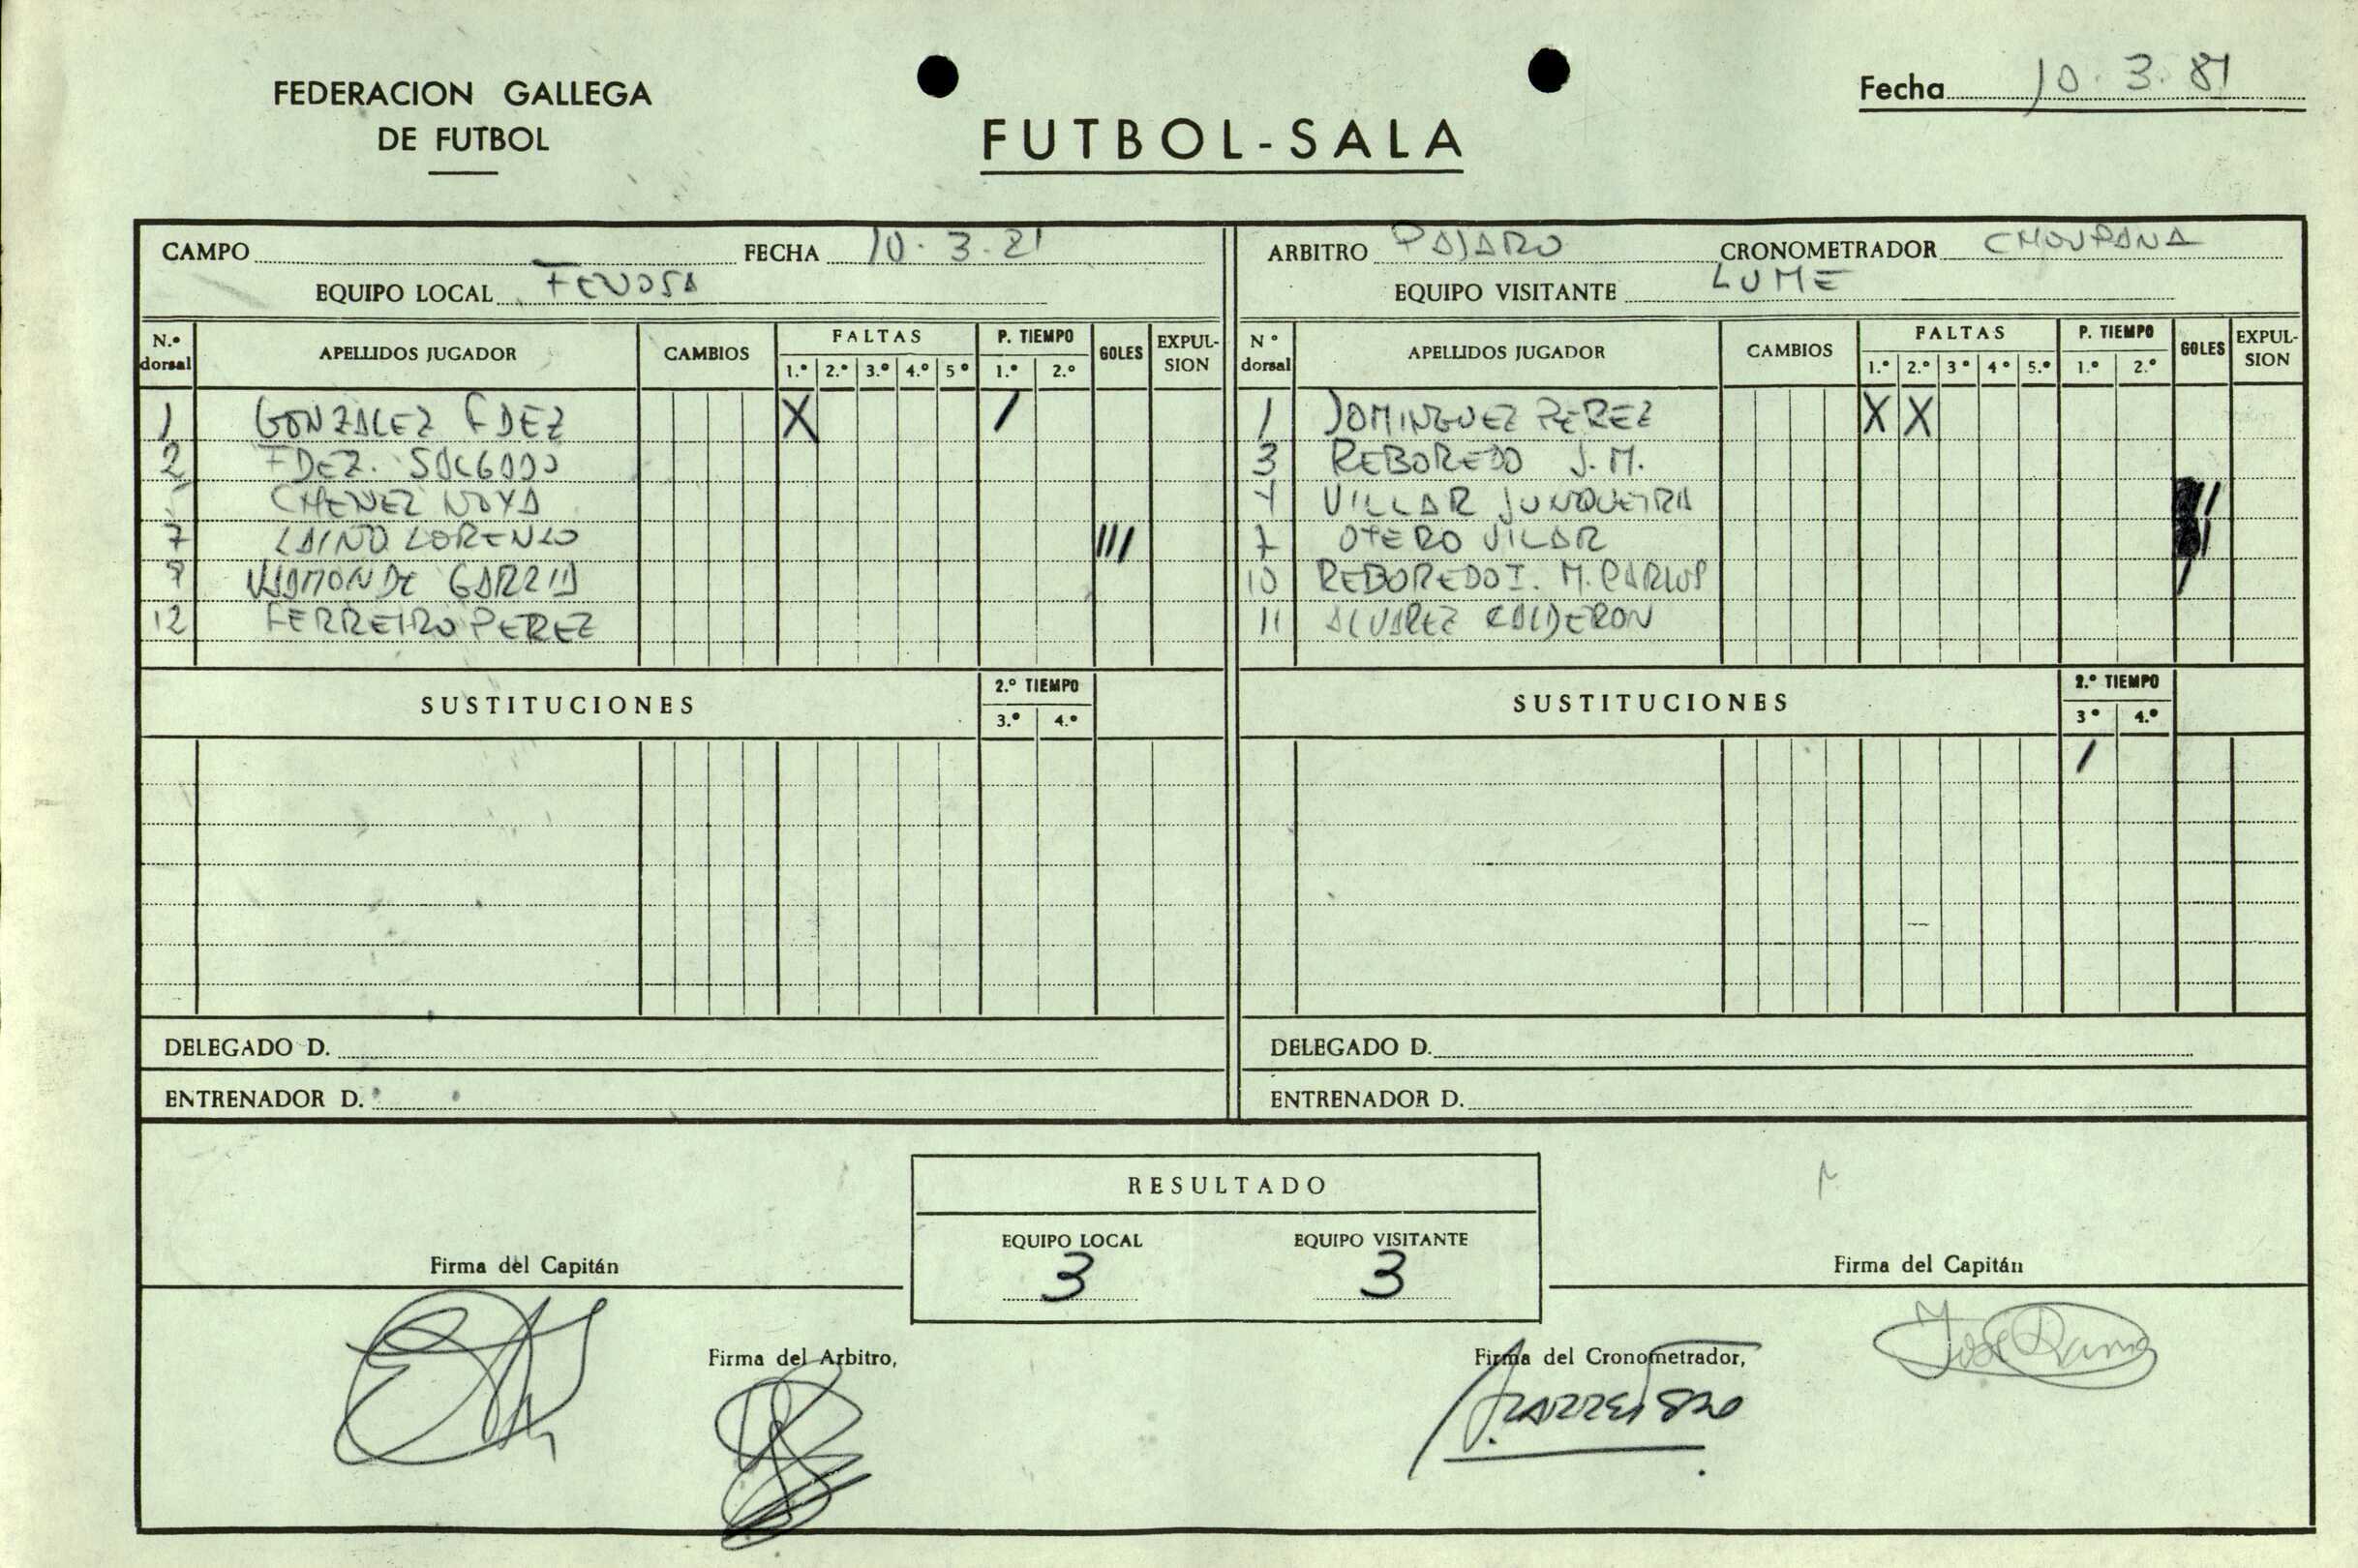 FEDERACION GALLEGA
DE FUTBOL
FUTBOL-SALA
Fecha 10.3.81
CAMPO FECHA 10.3.81
EQUIPO LOCAL FENOSA
ARBITRO PAJARO CRONOMETRADOR CHOUPANA
EQUIPO VISITANTE LUME
N.º dorsal APELLIDOS JUGADOR CAMBIOS FALTAS P. TIEMPO GOLES EXPULSION
1.º 2.º 3.º 4.º 5º 1.º 2.º
1 GONZALEZ FDEZ X /
2 FDEZ. SALGADO
CHENEZ NOYA
7 LAINO LORENZO III
9 VIAMONDE GARRID
12 FERREIRO PEREZ
SUSTITUCIONES 2.º TIEMPO
3.º 4.º
DELEGADO D.
ENTRENADOR D.
Nº dorsal APELLIDOS JUGADOR CAMBIOS FALTAS P. TIEMPO GOLES EXPULSION
1.º 2.º 3º 4º 5.º 1.º 2.º
1 DOMINGUEZ PEREZ X X
3 REBOREDO J.M.
4 VILLAR JUNQUEIRA II
7 OTERO VILAR
10 REBOREDO I. M. CARLOS /
11 ALVAREZ CALDERON
SUSTITUCIONES 2.º TIEMPO
3º 4.º
/
DELEGADO D.
ENTRENADOR D.
RESULTADO
EQUIPO LOCAL EQUIPO VISITANTE
3 3
Firma del Capitán
Firma del Arbitro,
Firma del Cronometrador,
Firma del Capitán